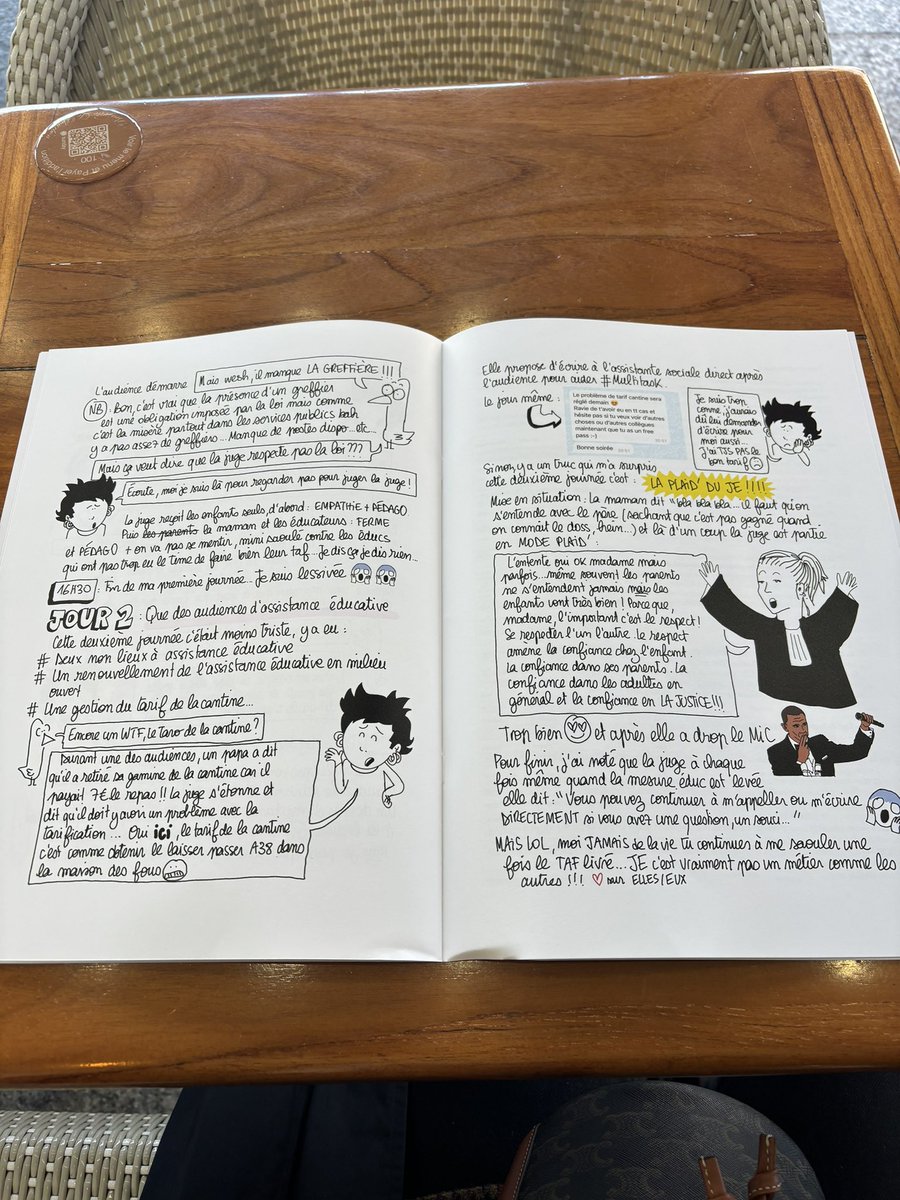 Voir le menu et Payer l'addition
100
L'audience démarre Mais wesh, il manque LA GREFFIÈRE !!!
NB : Bon, c'est vrai que la présence d'un greffier
est une obligation imposée par la loi mais comme
c'est la misère partout dans les services publics bah
y a pas assez de greffiers... Manque de postes dispo...etc...
Mais ça veut dire que la juge respecte pas la loi ???
Écoute, moi je suis là pour regarder pas pour juger la juge !
La juge reçoit les enfants seuls d'abord : EMPATHIE + PÉDAGO
Puis les parents la maman et les éducateurs : FERME
et PÉDAGO + on va pas se mentir, mini saoulé contre les éducs
qui ont pas trop eu le time de faire bien leur taf. Je dis ça je dis rien...
16H30 : Fin de ma première journée... Je suis lessivée
JOUR 2 : Que des audiences d'assistance éducative
Cette deuxième journée c'était moins triste, y a eu :
# Deux non lieux à assistance éducative
# Un renouvellement de l'assistance éducative en milieu
ouvert
# Une gestion du tarif de la cantine...
Encore un WTF, le taro de la cantine ?
Durant une des audiences, un papa a dit
qu'il a retiré sa gamine de la cantine car il
payait 7€ le repas !! La juge s'étonne et
dit qu'il doit y avoir un problème avec la
tarification... Oui ici, le tarif de la cantine
c'est comme obtenir le laisser passer A38 dans
la maison des fous
Elle propose d'écrire à l'assistante sociale direct après
l'audience pour aider #Multitask.
Le jour même :
Le problème de tarif cantine sera
réglé demain
Ravie de t'avoir eu en tt cas et
hésite pas si tu veux voir d'autres
choses ou d'autres collègues
maintenant que tu as un free
pass :-)
Bonne soirée
Je suis trop
conne, j'aurais
dû lui demander
d'écrire pour
moi aussi...
j'ai TJS PAS le
bon tarif
Sinon, y a un truc qui m'a surpris
cette deuxième journée c'est : LA PLAID' DU JE !!!!
Mise en situation : La maman dit "bla bla bla... il faut qu'on
s'entende avec le père (sachant que c'est pas gagné quand
on connaît le doss, hein...) et là d'un coup la juge est partie
en MODE PLAID' :
L'entente oui ok madame mais
parfois...même souvent les parents
ne s'entendent jamais mais les
enfants vont très bien ! Parce que,
madame, l'important c'est le respect !
Se respecter l'un l'autre. Le respect
amène la confiance chez l'enfant.
La confiance dans ses parents. La
confiance dans les adultes en
général et la confiance en LA JUSTICE !!!
Trop bien et après elle a drop le Mic
Pour finir, j'ai noté que la juge à chaque
fois même quand la mesure éduc est levée
elle dit : "Vous pouvez continuer à m'appeller ou m'écrire
DIRECTEMENT si vous avez une question, un souci..."
MAIS LOL, moi JAMAIS de la vie tu continues à me saouler une
fois le TAF livré... JE c'est vraiment pas un métier comme les
autres !!! sur ELLES/EUX